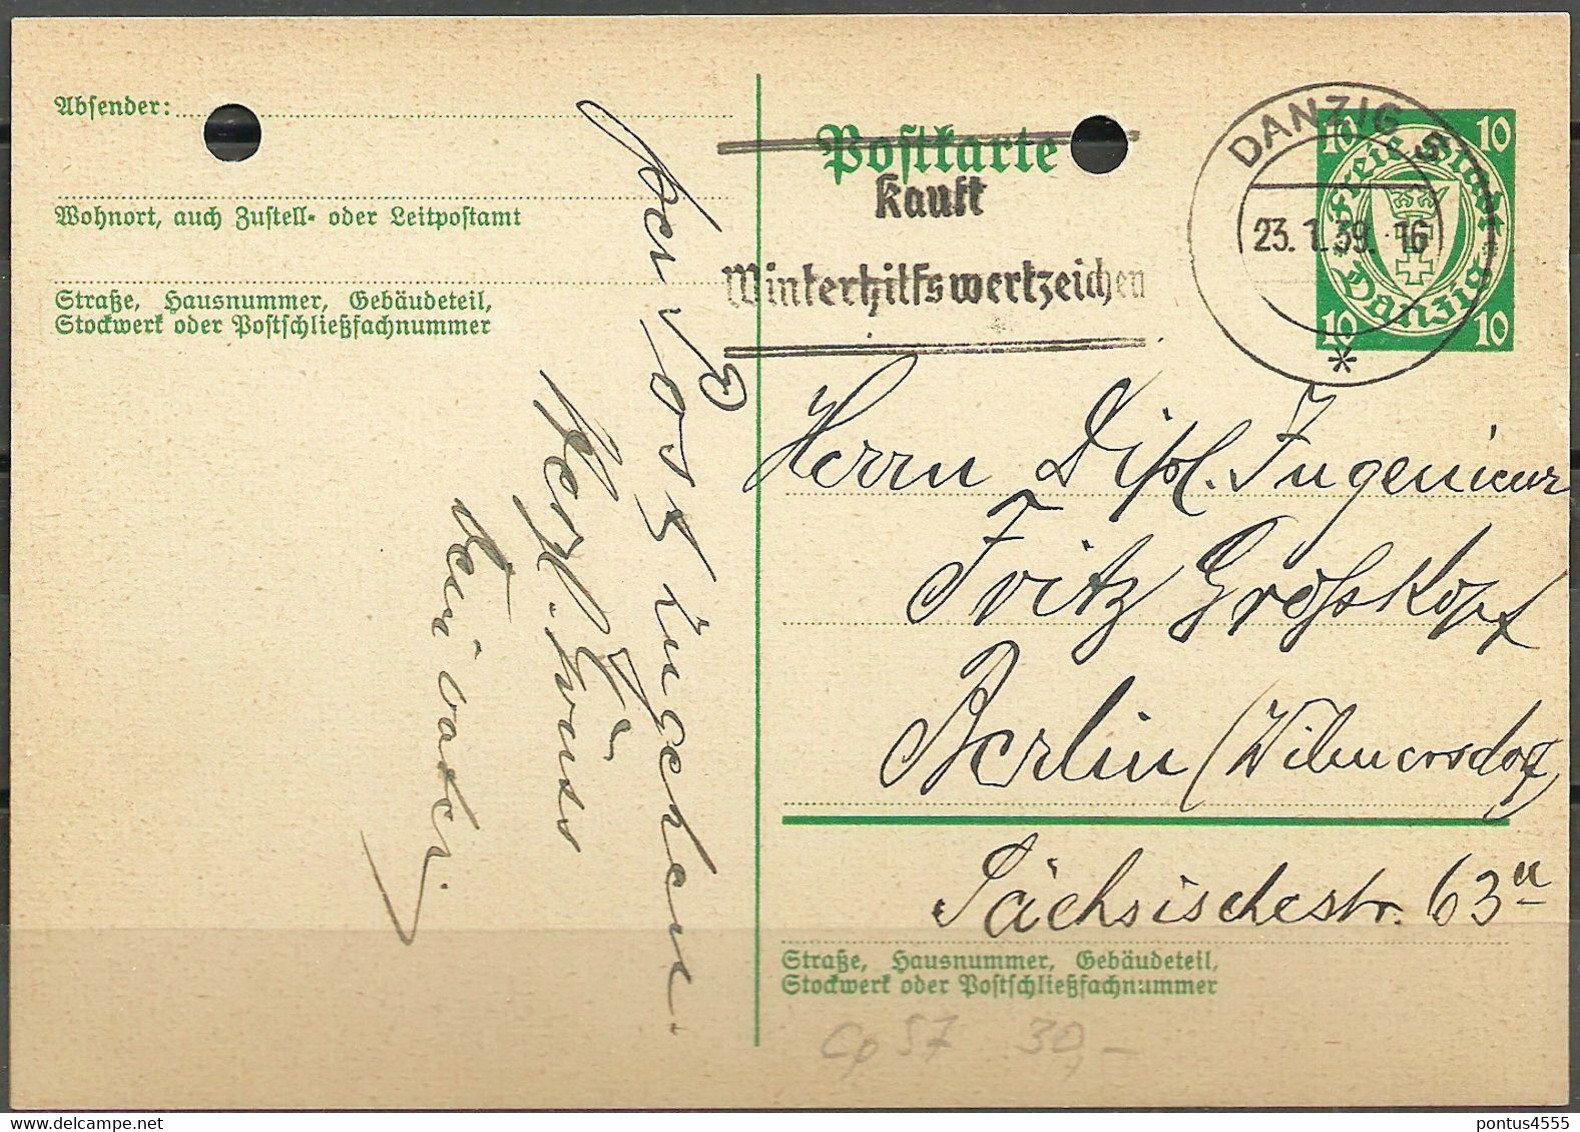 Absender:
Wohnort, auch Zustell- oder Leitpostamt
Straße, Hausnummer, Gebäudeteil,
Stockwerk oder Postschließfachnummer
vorzugehen.
Herzl. Grüss
Dein Vater.
Postkarte
Kauft
Winterhilfswertzeichen
DANZIG 5
23.1.39.-16
*
10 10
Freie Stadt
Danzig
10 10
Herrn Dipl. Ingenieur
Fritz Grosskopf
Berlin (Wilmersdorf)
Sächsischestr. 63a
Straße, Hausnummer, Gebäudeteil,
Stockwerk oder Postschließfachnummer
Cp 57 30,-
pontus4555